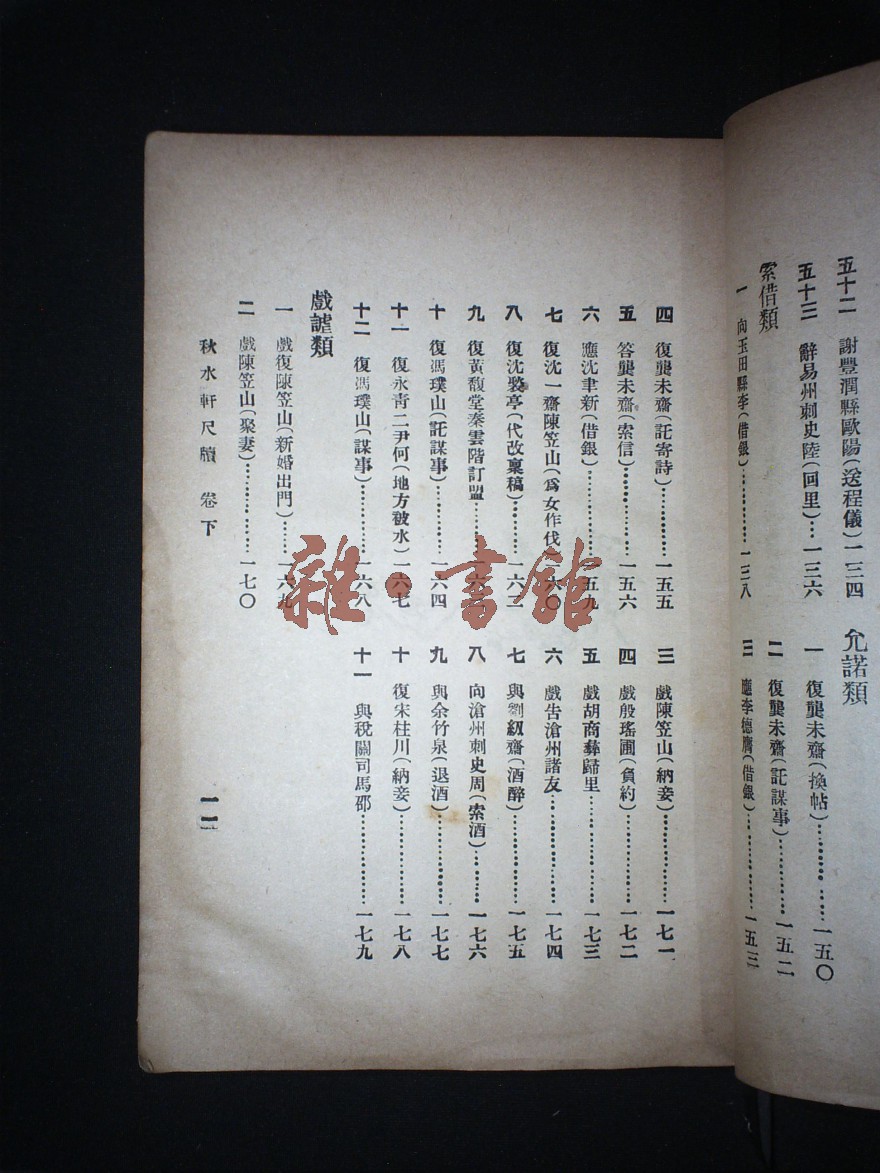 五十二 謝豐潤縣歐陽(送程儀)一三四
五十三 辭易州刺史陸(回里)…一三六
索借類
一 向玉田縣李(借銀)…………一三八
允諾類
一 復龔未齋(換帖)…………一五〇
二 復龔未齋(託謀事)………一五二
三 應李德膺(借銀)…………一五三
四 復龔未齋(託寄詩)………一五五
五 答龔未齋(索信)…………一五六
六 應沈聿新(借銀)…………一五九
七 復沈一齋陳笠山(爲女作伐)一六〇
八 復沈 亭(代改稟稿)……一六二
九 復黃馥堂秦雲階訂盟………一六
十 復馮璞山(託謀事)………一六四
十一 復永青二尹何(地方被水)一六七
十二 復馮璞山(謀事)………一六八
戲謔類
一 戲復陳笠山(新婚出門)……一六九
二 戲陳笠山(聚妻)…………一七〇
三 戲陳笠山(納妾)…………一七一
四 戲殷瑤圃(負約)…………一七二
五 戲胡商彝歸里………………一七三
六 戲告滄州諸友………………一七四
七 與劉紉齋(酒醉)…………一七五
八 向滄州刺史周(索酒)……一七六
九 與余竹泉(退酒)…………一七七
十 復宋桂川(納妾)…………一七八
十一 與稅關司馬邵……………一七九
秋水軒尺牘 卷下
一一
雜·書館